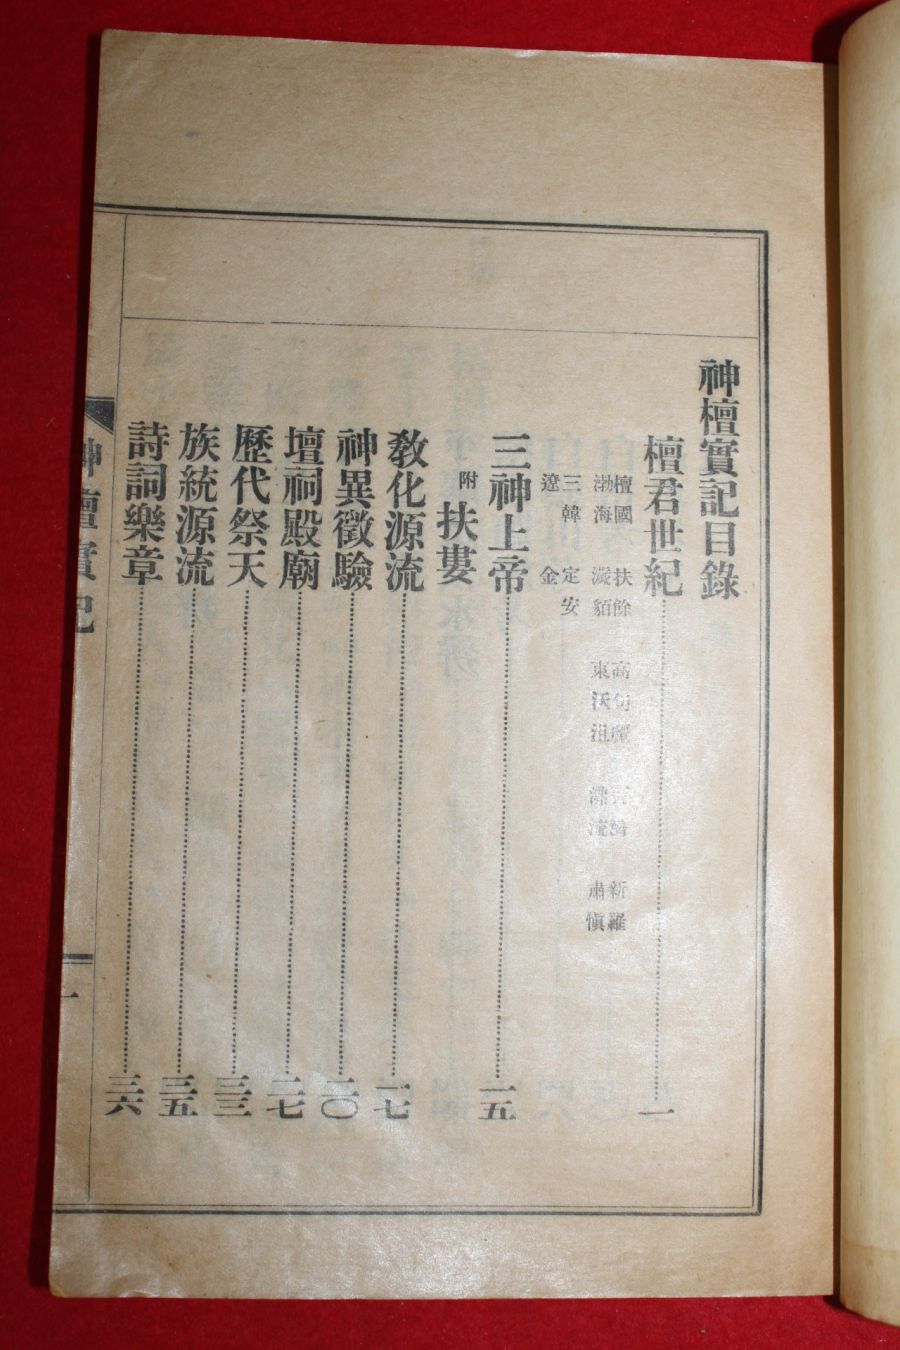 神檀實記目錄
檀君世紀……一
檀國 扶餘 高句麗 百濟 新羅
渤海 濊貊 東沃沮 沸流 肅愼
三韓 定安
遼 金
三神上帝……一五
附扶婁
敎化源流……一七
神異徵驗……二〇
壇祠殿廟……二七
歷代祭天……三三
族統源流……三五
詩詞樂章……三六
神檀實記
一